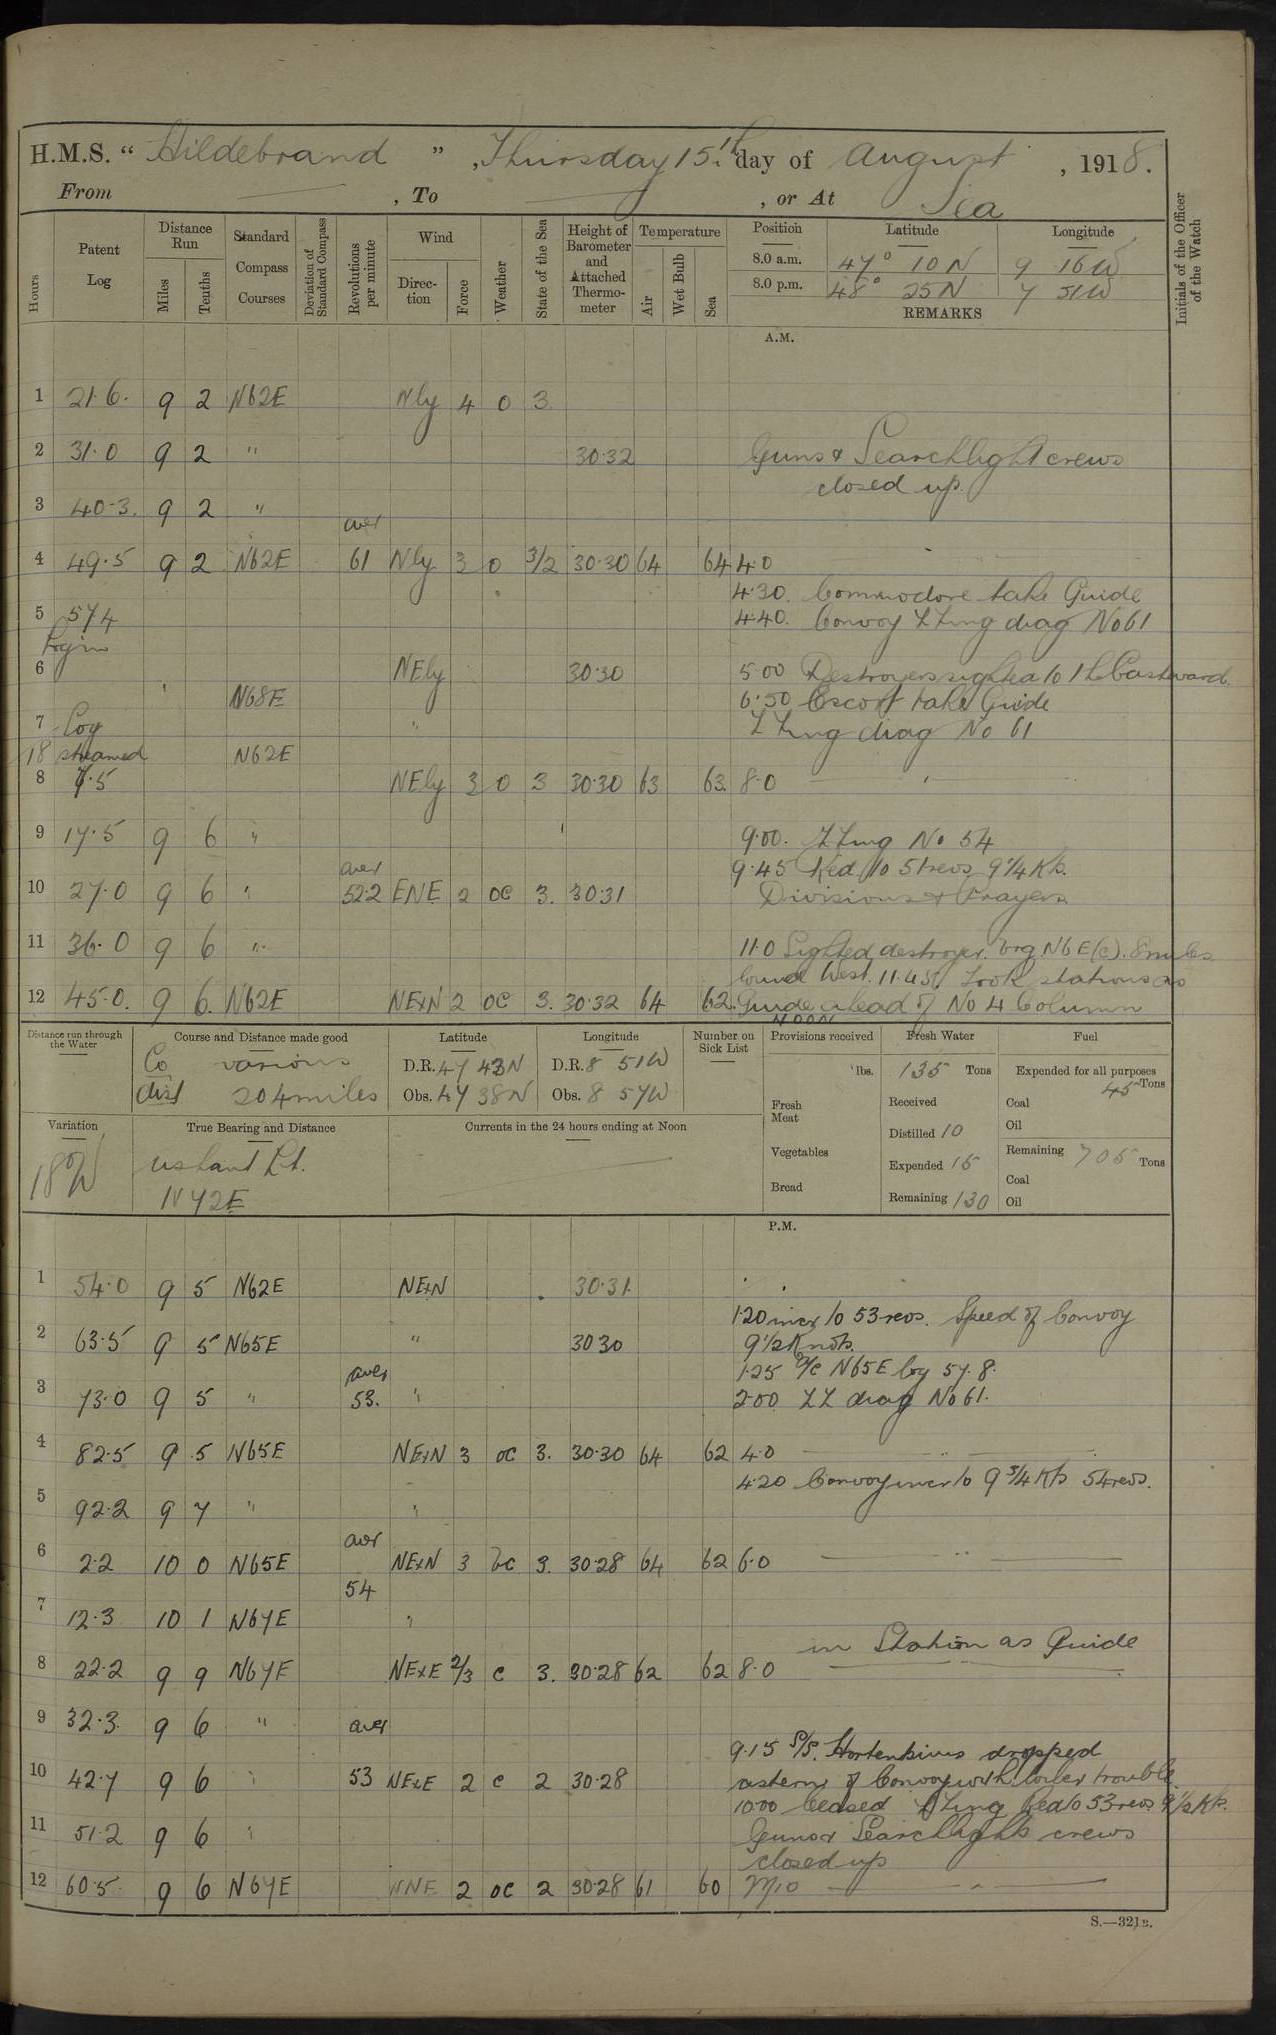 H.M.S. “ Hildebrand ” , Thursday 15th day of August , 1918.
From — , To — , or At Sea
Hours
Patent Log
Distance Run
Miles
Tenths
Standard Compass Courses
Deviation of Standard Compass
Revolutions per minute
Wind
Direction
Force
Weather
State of the Sea
Height of Barometer and Attached Thermometer
Temperature
Air
Wet Bulb
Sea
Position Latitude Longitude
8.0 a.m. 47° 10 N 9 16 W
8.0 p.m. 48° 25 N 7 51 W
REMARKS
Initials of the Officer of the Watch
A.M.
1 21.6. 9 2 N62E Nly 4 0 3
2 31.0 9 2 " 30.32 Guns & Searchlight crews
closed up.
3 40.3. 9 2 "
aver
4 49.5 9 2 N62E 61 Nly 3 0 3/2 30.30 64 64 4.0
4.30. Commodore take Guide
5 57.4 4.40. Convoy ZZing diag No 61
Log in
6 NEly 30.30 5.00 Destroyers sighted to the Eastward.
N68E 6.50 Escort take Guide
7 Log " ZZing diag No 61
18 steamed N62E
8 7.5 NEly 3 0 3 30.30 63 63. 8.0 — " —
9 17.5 9 6 " 9.00. ZZing No 54
aver 9.45 Red. to 51 revs 9 1/4 Kts.
10 27.0 9 6 " 52.2 ENE 2 oc 3. 30.31 Divisions & Prayers
11 36.0 9 6 " 11.0 Sighted destroyer. brg N6E (c). 8 miles
bound West. 11.45. Took stations as
12 45.0. 9 6. N62E NExN 2 oc 3. 30.32 64 62. Guide ahead of No 4 Column
NOON
Distance run through the Water
Course and Distance made good
Co various
dist 204 miles
Latitude
D.R. 47 43 N
Obs. 47 38 N
Longitude
D.R. 8 51 W
Obs. 8 57 W
Number on Sick List
Provisions received
lbs.
Fresh Meat
Vegetables
Bread
Fresh Water
135 Tons
Received
Distilled 10
Expended 15
Remaining 130
Fuel
Expended for all purposes
45 Tons
Coal
Oil
Remaining 705 Tons
Coal
Oil
Variation
18° W
True Bearing and Distance
Ushant Lt.
N 72 E
Currents in the 24 hours ending at Noon
P.M.
1 54.0 9 5 N62E NExN 30.31.
1.20 incr to 53 revs. Speed of Convoy
2 63.5 9 5 N65E " 30 30 9 1/2 Knots.
aver 1.25 a/c N65E log 57.8.
3 73.0 9 5 " 53. " 2.00 ZZ diag No 61.
4 82.5 9 5 N65E NExN 3 oc 3. 30.30 64 62 4.0 — " —
4.20 Convoy incr to 9 3/4 Kts 54 revs.
5 92.2 9 7 " "
aver
6 2.2 10 0 N65E NExN 3 bc 3. 30.28 64 62 6.0 — " —
54
7 12.3 10 1 N67E "
in Station as Guide
8 22.2 9 9 N67E NExE 2/3 c 3. 30.28 62 62 8.0 —
9 32.3. 9 6 " aver
9.15 S/S. Hortensius dropped
10 42.7 9 6 " 53 NExE 2 c 2 30.28 astern of Convoy with boiler trouble.
10.00 Ceased ZZing Red to 53 revs 9 1/2 Kts.
11 51.2 9 6 " Guns & Searchlight crews
closed up
12 60.5 9 6 N67E NNE 2 oc 2 30.28 61 60 Mid — " —
S.—321B.